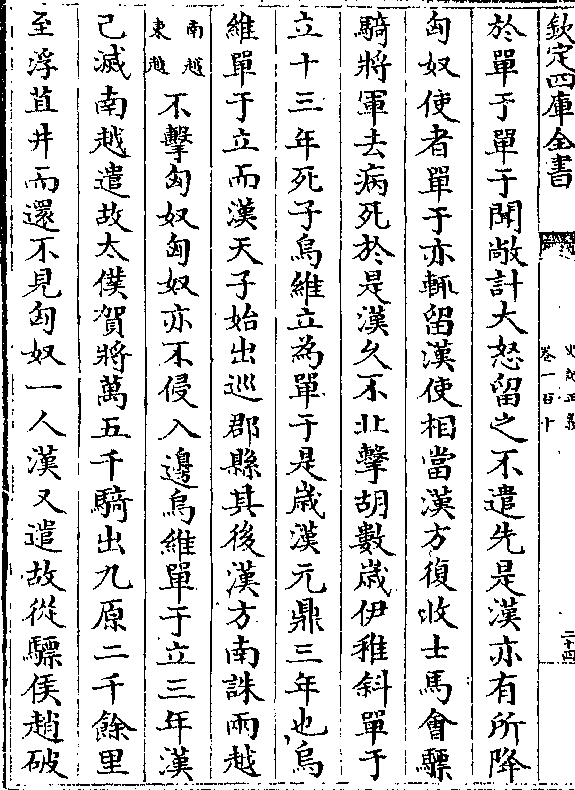 欽定四庫全書
史記正義
卷一百十
二十四
於單于單于聞敞計大怒留之不遣先是漢亦有所降
匈奴使者單于亦輒留漢使相當漢方復收士馬會驃
騎將軍去病死於是漢久不北擊胡數歲伊稚斜單于
立十三年死子烏維立為單于是歲漢元鼎三年也烏
維單于立而漢天子始出巡郡縣其後漢方南誅兩越
南越
東越
不擊匈奴匈奴亦不侵入邊烏維單于立三年漢
已滅南越遣故太僕賀將萬五千騎出九原二千餘里
至浮苴井而還不見匈奴一人漢又遣故從驃侯趙破